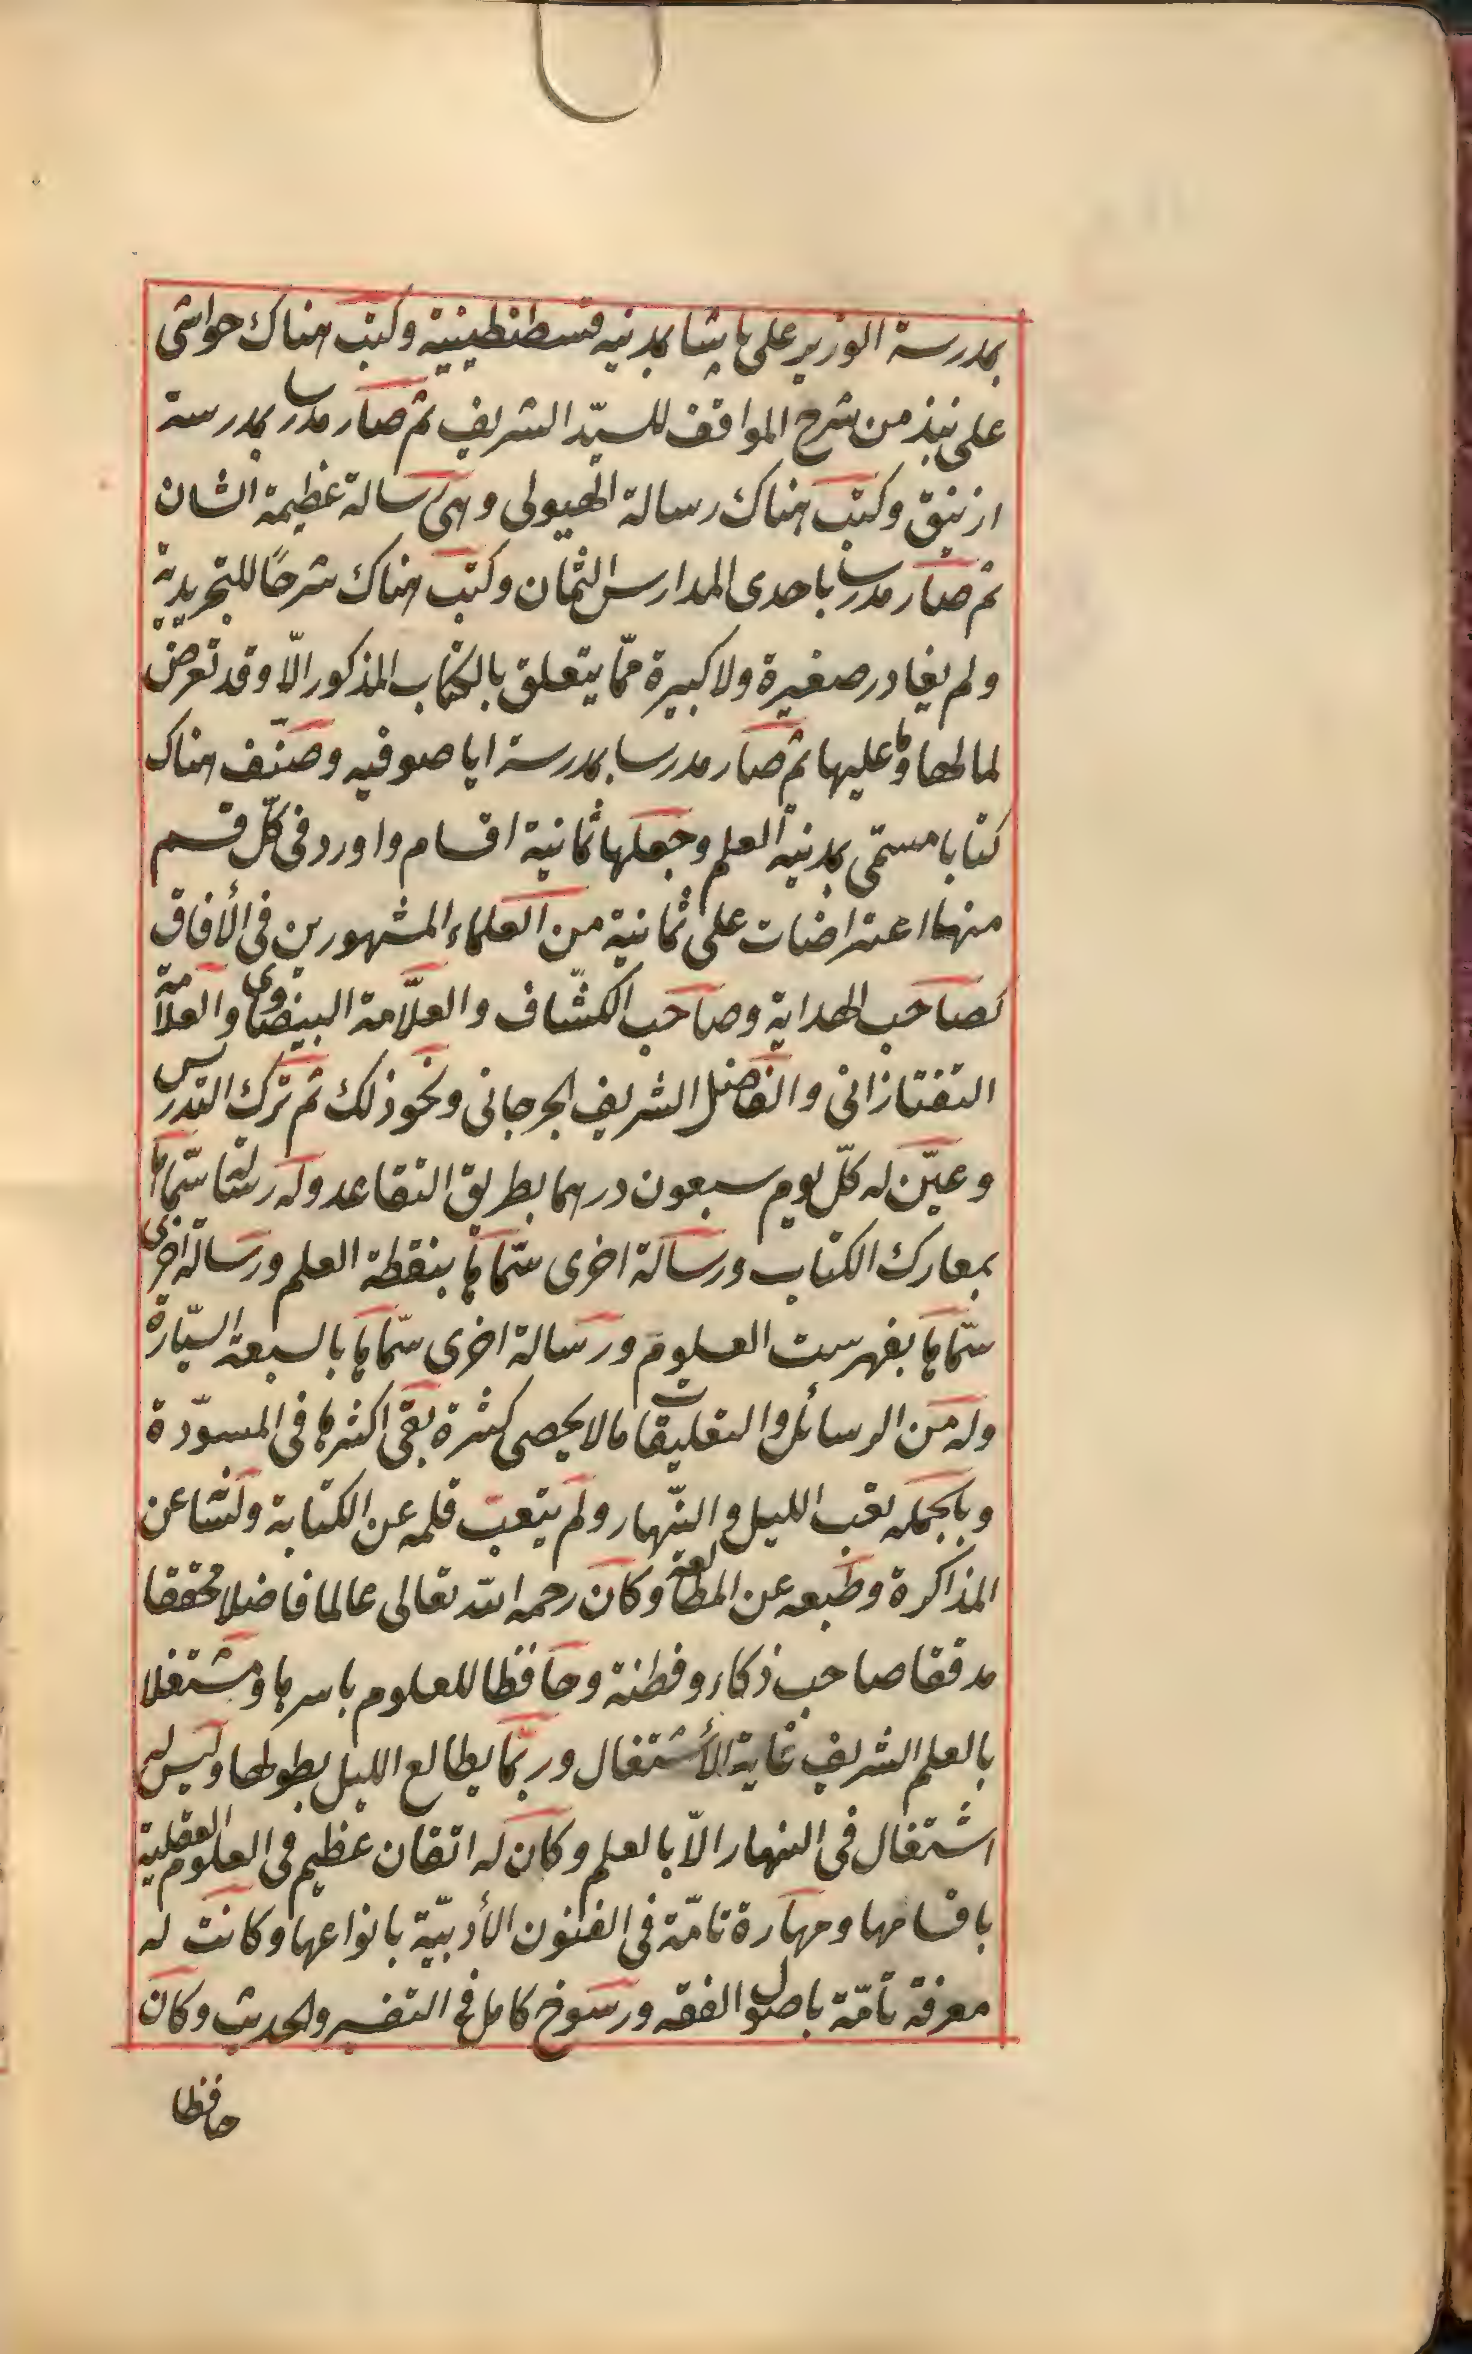 بمدرسة الوزير على پاشا بمدينه قسطنطينية وكتب هناك حواشى
على نبذ من شرح المواقف للسيّد الشريف ثم صار مدرسا بمدرسة
ازنيق وكتب هناك رسالة الهيولى وهى رسالة عظيمة الشان
ثم صار مدرسا باحدى المدارس الثمان وكتب هناك شرحًا للتجريد
ولم يغادر صغيرة ولا كبيرة ممّا يتعلق بالكتاب المذكور الّا وقد تعرض
لما لها وما عليها ثم صار مدرسا بمدرسة ايا صوفيه وصنّف هناك
كتابا مسمّى بمدينة العلم وجعلها ثمانية اقسام واورد فى كلّ قسم
منها اعتراضات على ثمانية من العلماء المشهورين فى الأفاق
كصاحب الهداية وصاحب الكشّاف والعلّامة البيضاوى والعلّامة
التفتازانى والفاضل الشريف الجرجانى ونحو ذلك ثم ترك التدريس
وعيّن له كلّ يوم سبعون درهما بطريق التقاعد وله رسالة سمّاها
بمعارك الكتاب ورسالة اخرى سمّاها بنقطة العلم ورسالة اخرى
سمّاها بفهرست العلوم ورسالة اخرى سمّاها بالسبعة السيّارة
وله من الرسائل والتعليقات ما لا يحصى كثرة بقى اكثرها فى المسوّدة
وبالجمله تعب الليل والنّهار ولم يتعب قلمه عن الكتابة ولسانه عن
المذاكرة وطبعه عن المطالعة وكان رحمه الله تعالى عالما فاضلا محققا
مدققا صاحب ذكاء وفطنة وحافظا للعلوم باسرها ومشتغلا
بالعلم الشريف غاية الأشتغال وربّما يطالع الليل بطولها وليس له
اشتغال فى النهار الّا بالعلم وكان له اتقان عظيم فى العلوم العقلية
باقسامها ومهارة تامّة فى الفنون الأدبيّة بانواعها وكانت له
معرفة تامّة باصول الفقه ورسوخ كامل فى التفسير والحديث وكان
حافظا